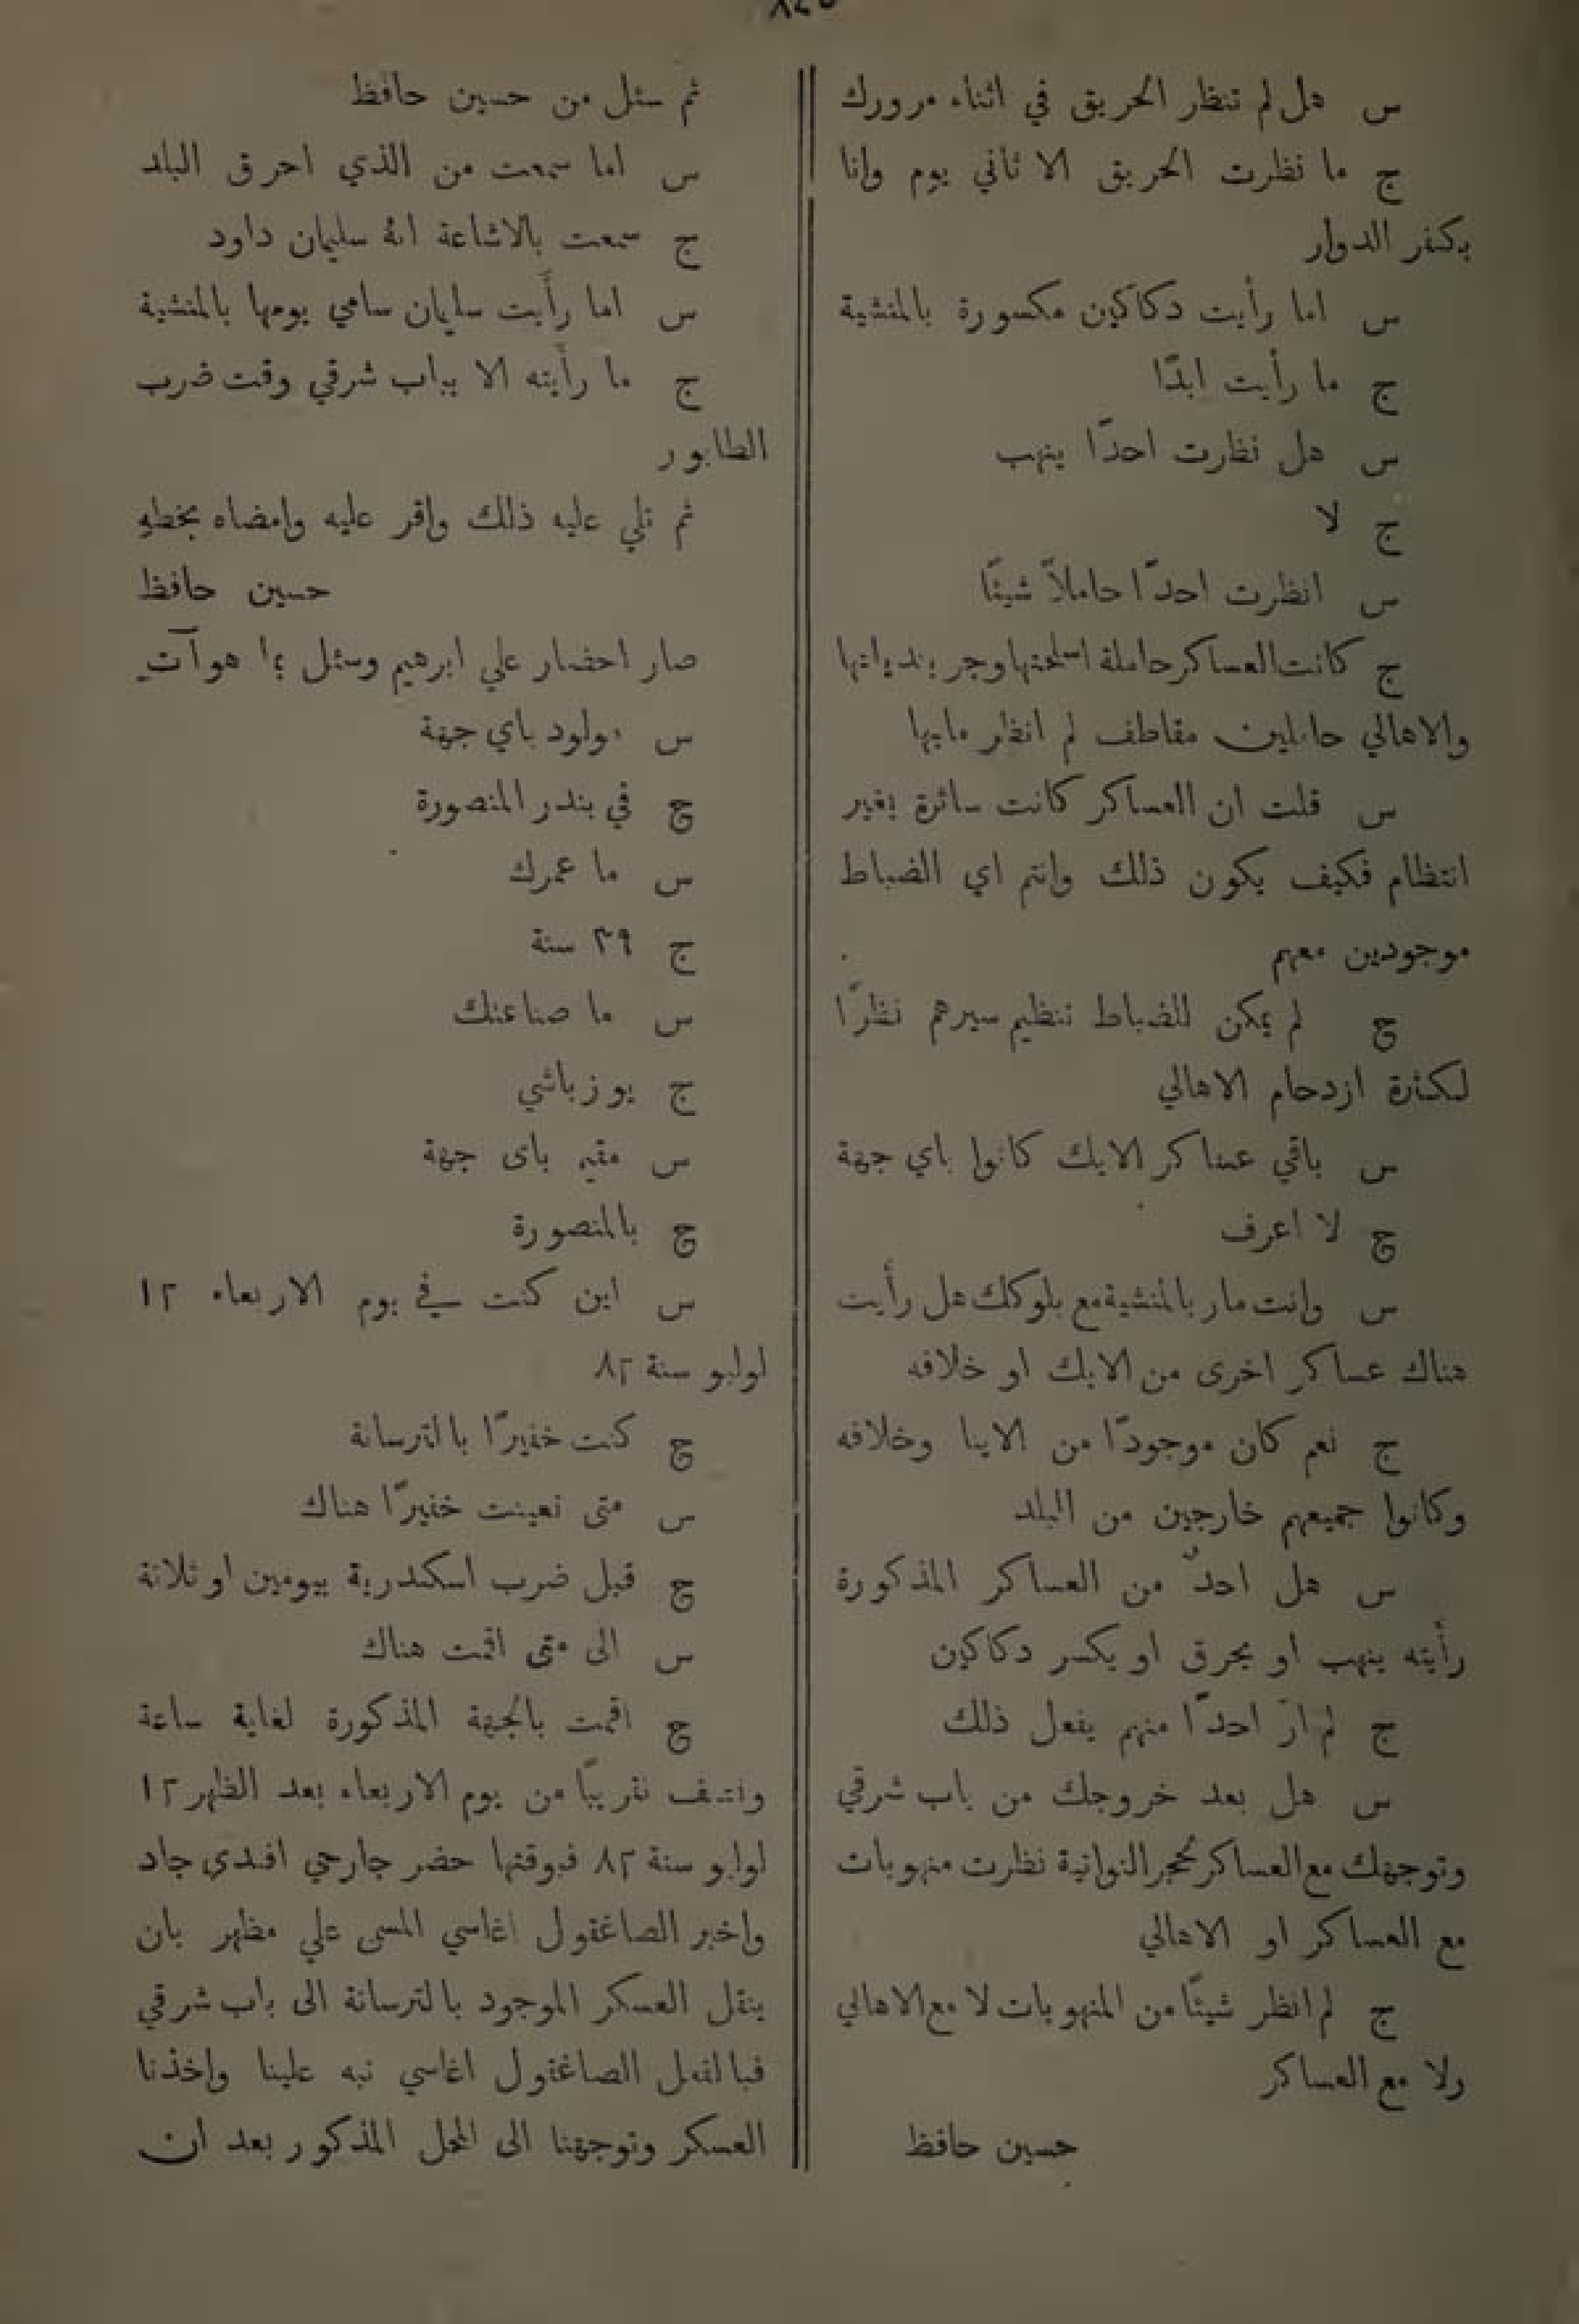 س هل لم تنظر الحريق في اثناء مرورك
ج ما نظرت الحريق الا ثاني يوم وانا
بكفر الدوار
س اما رأيت دكاكين مكسورة بالمنشية
ج ما رأيت ابدًا
س هل نظرت احدًا ينهب
ج لا
س انظرت احدًا حاملاً شيئًا
ج كانت العساكر حاملة اسلحتها وجربندياتها
والاهالي حاملين مقاطف لم انظر مابها
س قلت ان العساكر كانت سائرة بغير
انتظام فكيف يكون ذلك وانتم اي الضباط
موجودين معهم
ج لم يمكن للضباط تنظيم سيرهم نظرًا
لكثرة ازدحام الاهالي
س باقي عساكر الايك كانوا باي جهة
ج لا اعرف
س وانت مار بالمنشية مع بلوكك هل رأيت
هناك عساكر اخرى من الايك او خلافه
ج نعم كان موجودًا من الاينا وخلافه
وكانوا جميعهم خارجين من البلد
س هل احدٌ من العساكر المذكورة
رأيته ينهب او يحرق او يكسر دكاكين
ج لم ارَ احدًا منهم يفعل ذلك
س هل بعد خروجك من باب شرقي
وتوجهك مع العساكر لحجر النواتية نظرت منهوبات
مع العساكر او الاهالي
ج لم انظر شيئًا من المنهوبات لا مع الاهالي
ولا مع العساكر
حسين حافظ
ثم سئل من حسين حافظ
س اما سمعت من الذي احرق البلد
ج سمعت بالاشاعة انهُ سليمان داود
س اما رأَيت سليمان سامي يومها بالمنشية
ج ما رأَيته الا بباب شرقي وقت ضرب
الطابور
ثم تلي عليه ذلك واقر عليه وامضاه بخطهِ
حسين حافظ
صار احضار علي ابرهيم وسئل بما هو آت
س مولود باي جهة
ج في بندر المنصورة
س ما عمرك
ج ٢٩ سنة
س ما صناعتك
ج يوزباشي
س مقيم باى جهة
ج بالمنصورة
س اين كنت في يوم الاربعاء ١٢
لوليو سنة ٨٢
ج كنت خفيرًا بالترسانة
س متى تعينت خفيرًا هناك
ج قبل ضرب اسكندرية بيومين او ثلاثة
س الى متى اقمت هناك
ج اقمت بالجهة المذكورة لغاية ساعة
ونصف تقريبًا من يوم الاربعاء بعد الظهر ١٢
لوليو سنة ٨٢ فبوقتها حضر جارحي افندى جاد
واخبر الصاغقول اغاسي المسمى علي مظهر بان
ينقل العسكر الموجود بالترسانة الى باب شرقي
فبالفعل الصاغقول اغاسي نبه علينا واخذنا
العسكر وتوجهنا الى المحل المذكور بعد ان